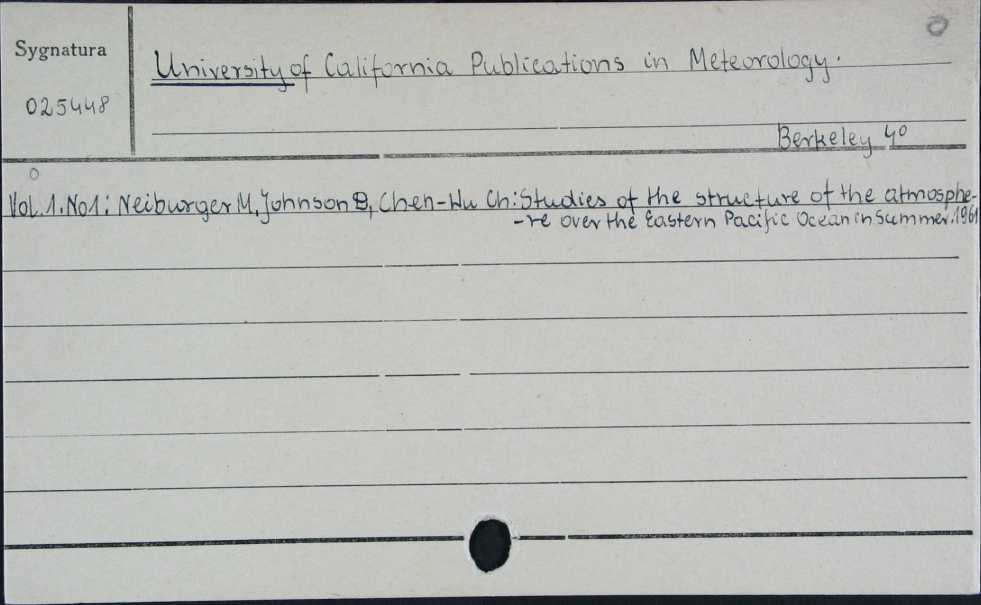 Sygnatura
025448
University of California Publications in Meteorology.
Berkeley 4°
Vol.1.No1: Neiburger M, Johnson D, Chen-Wu Ch: Studies of the structure of the atmosphe-
-re over the Eastern Pacific Ocean in Summer. 1961